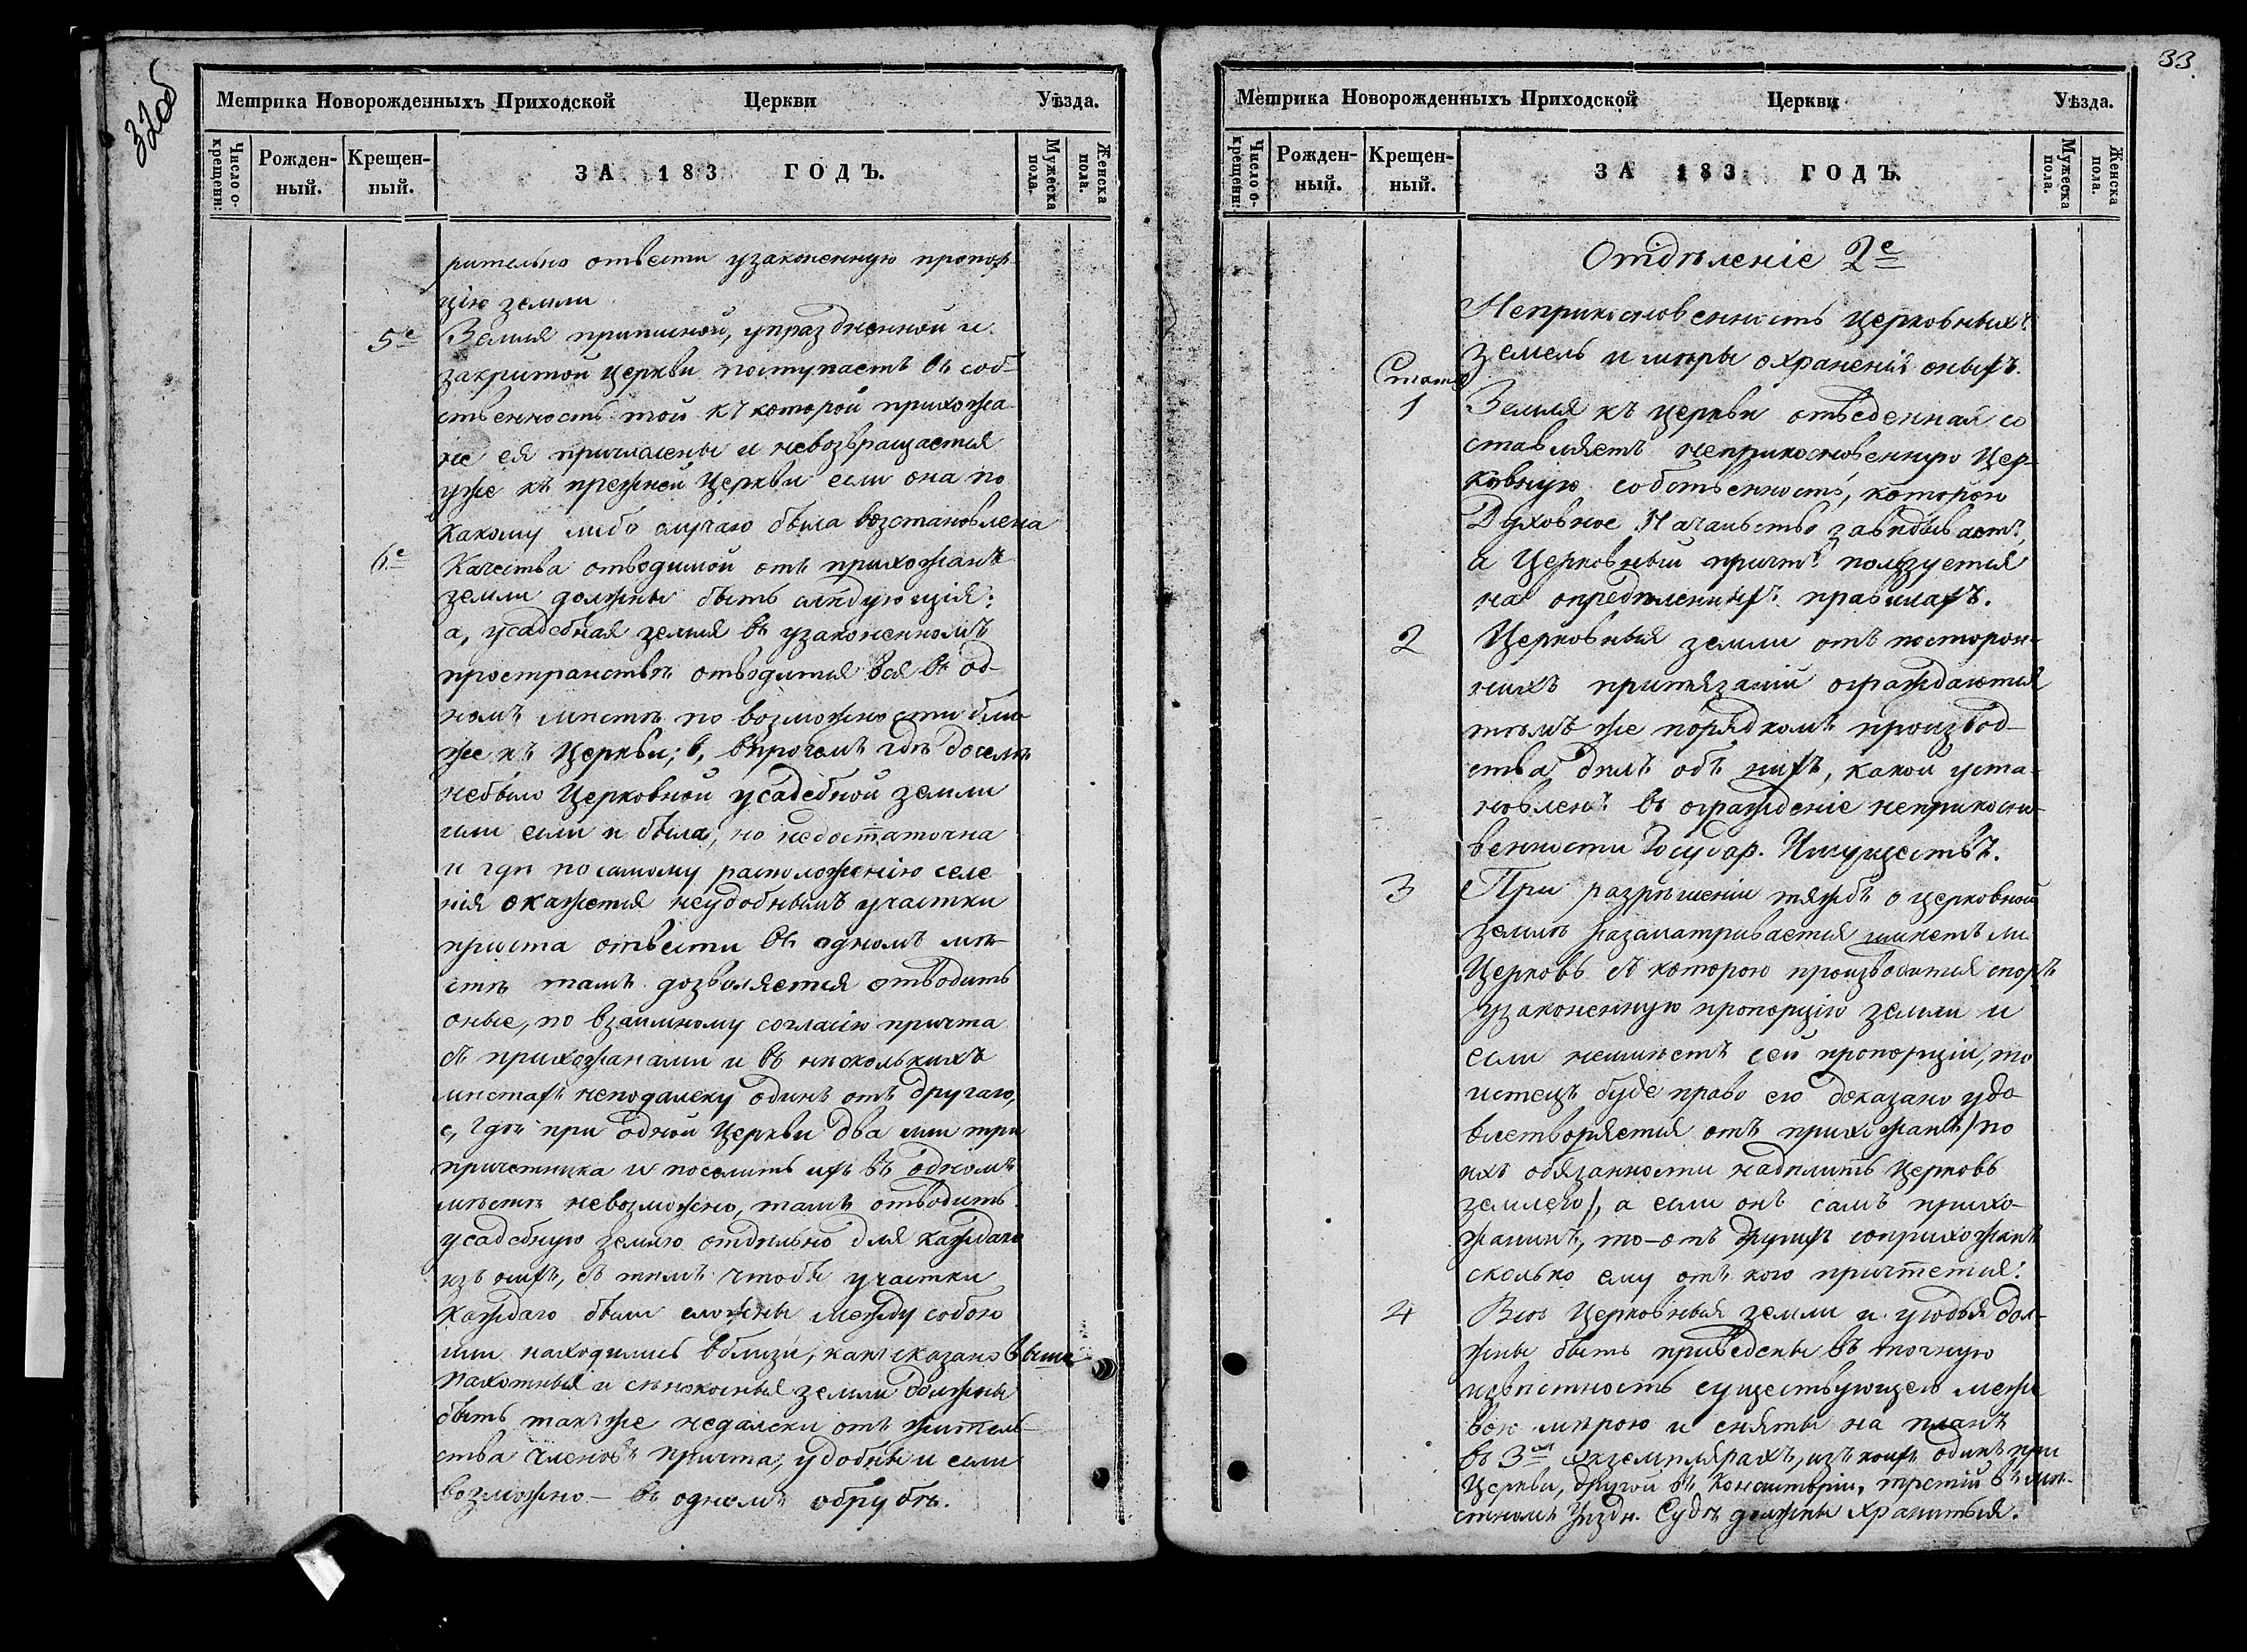 32об
Метрика Новорожденныхъ Приходской Церкви Уѣзда.
Число о-
крещенн:
Рожден-
ный.
Крещен-
ный.
ЗА 183 ГОДЪ.
Мужеска
пола.
Женска
пола.
рительно отвести узаконенную пропор-
цію земли
5е Земля приписной, упраздненной и
закрытой Церкви поступаетъ въ соб-
ственность той къ которой прихожа-
не ея причислены и невозвращается
уже къ прежней Церкви если она по
какому либо случаю была возстановлена
6е Качества отводимой отъ прихожанъ
земли должны быть слѣдующія:
а, усадебная земля въ узаконенномъ
пространствѣ отводится вся въ од-
номъ мѣстѣ по возможности бли-
же къ Церкви; в, впрочемъ гдѣ доселѣ
небыло Церковной усадебной земли
или если и была, но недостаточна
и гдѣ посамому расположенію селе
нія окажется неудобнымъ участки
причта отвести въ одномъ мѣ-
стѣ тамъ дозволяется отводить
оные, по взаимному согласію причта
съ прихожанами и въ нѣсколькихъ
мѣстахъ неподалеку одинъ отъ другаго,
с, гдѣ при одной Церкви два или три
причетника и поселить ихъ въ одномъ
мѣстѣ невозможно, тамъ отводить
усадебную землю отдѣльно для каждаго
изъ нихъ, съ тѣмъ чтобы участки
каждаго были смежны между собою
или находились вблизи, какъ сказано выше
пахотныя и сѣнокосныя земли должны
быть также недалеки отъ житель-
ства членовъ причта, удобны и если
возможно – въ одномъ обрубѣ.
33.
Метрика Новорожденныхъ Приходской Церкви Уѣзда.
Число о-
крещенн:
Рожден-
ный.
Крещен-
ный.
ЗА 183 ГОДЪ.
Мужеска
пола.
Женска
пола.
Отдѣленіе 2е
Неприкосновенность церковныхъ
земель и мѣры охраненія оныхъ.
Статья
1 Земля къ церкви отведенная со
ставляетъ неприкосновенную Цер-
ковную собственность, которою
Духовное Начальство завѣдываетъ,
а Церковный причтъ пользуется
на опредѣленныхъ правилахъ.
2 Церковныя земли отъ посторон-
нихъ притязаній ограждаются
тѣмъ же порядкомъ производ-
ства дѣлъ объ нихъ, какой уста-
новленъ въ огражденіе неприкосно-
венности Государ. Имуществъ.
3 При разрѣшеніи тяжбъ о церковной
землѣ разсматривается имѣетъ ли
Церковь съ которою производится споръ
узаконенную пропорцію земли и
если неимѣетъ сей пропорціи, то
истецъ буде право его доказано удо-
влетворяется отъ прихожанъ /по
ихъ обязанности надѣлить Церковь
землею/, а если онъ самъ прихо-
жанинъ, то – отъ другихъ соприхожанъ
сколько ему отъ кого причтется.
4 Всѣ Церковныя земли и угодья дол-
жны быть приведены въ точную
извѣстность существующею меже
вою мѣрою и сняты на планъ
въ 3хъ экземплярахъ, изъ коихъ одинъ при
Церкви, другой въ Консисторіи, третій въ мѣ-
стномъ Уѣздн. Судѣ должны храниться.